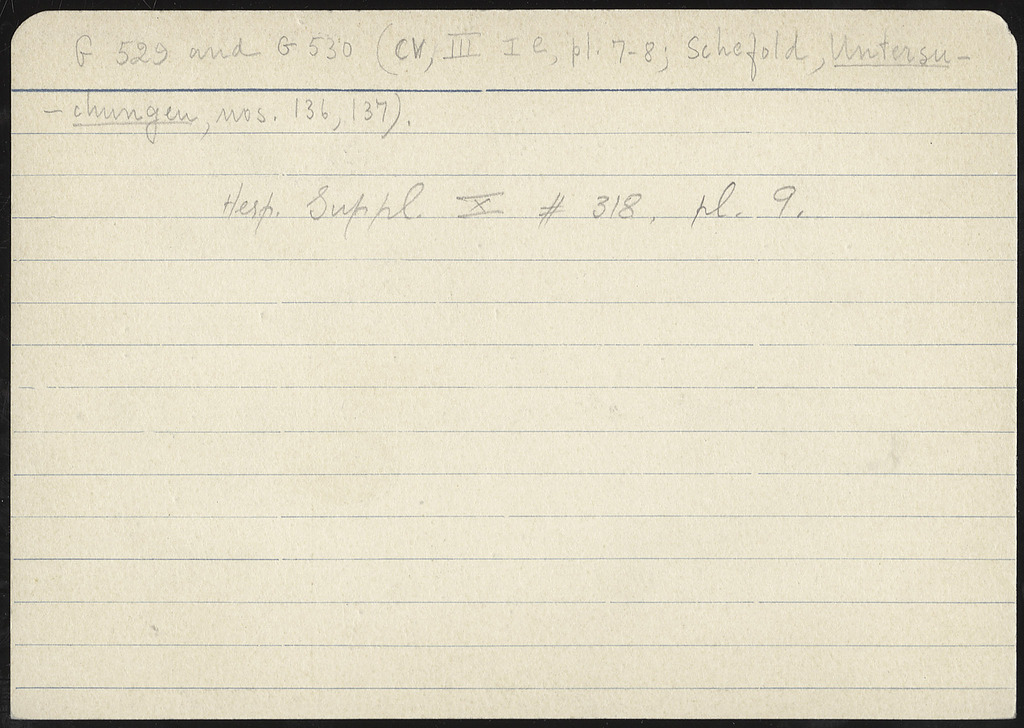 G 529 and G 530 (CV, III I e, pl. 7-8; Schefold, Untersu-
-chungen, nos. 136, 137).
Hesp. Suppl. X # 318, pl. 9.